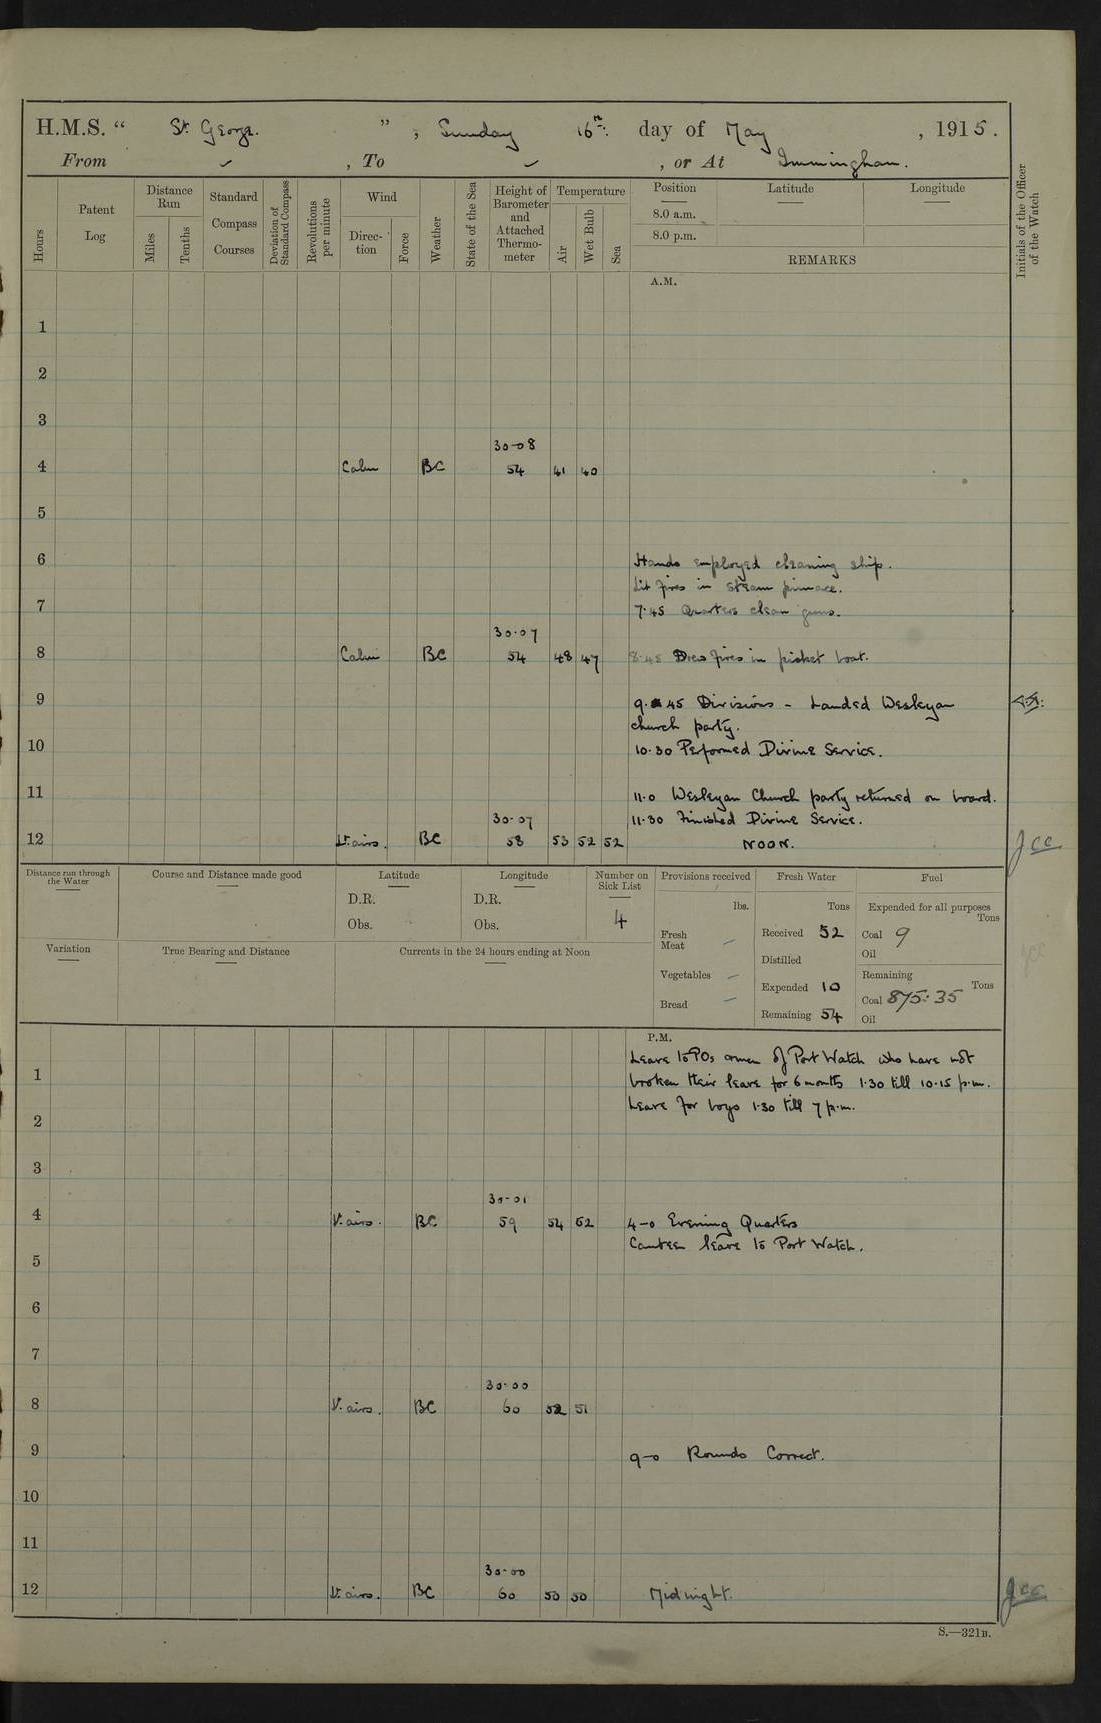 H.M.S. “ St. George. ” , Sunday 16th. day of May , 1915.
From , To , or At Immingham.
Hours
Patent Log
Distance Run
Miles
Tenths
Standard Compass Courses
Deviation of Standard Compass
Revolutions per minute
Wind
Direc-tion
Force
Weather
State of the Sea
Height of Barometer and Attached Thermo-meter
Temperature
Air
Wet Bulb
Sea
Position Latitude Longitude
8.0 a.m.
8.0 p.m.
REMARKS
Initials of the Officer of the Watch
A.M.
1
2
3
30-08
4 Calm BC 54 41 40
5
6 Hands employed cleaning ship.
Lit fires in steam pinnace.
7 7.45 Quarters clean guns.
30.07
8 Calm BC 54 48 47 8.45 Drew fires in picket boat.
9 9.45 Divisions - Landed Wesleyan
church party.
10 10.30 Performed Divine Service.
11 11.0 Wesleyan Church party returned on board.
30.07 11.30 Finished Divine Service.
12 Lt. airs. BC 58 53 52 52 NOON. JCC
Distance run through the Water
Course and Distance made good
Latitude
D.R.
Obs.
Longitude
D.R.
Obs.
Number on Sick List
4
Provisions received
lbs.
Fresh Meat
Vegetables
Bread
Fresh Water
Tons
Received 52
Distilled
Expended 10
Remaining 54
Fuel
Expended for all purposes
Tons
Coal 9
Oil
Remaining
Tons
Coal 875.35
Oil
Variation
True Bearing and Distance
Currents in the 24 hours ending at Noon
P.M.
Leave to POs & men of Port Watch who have not
1 broken their leave for 6 months 1.30 till 10.15 p.m.
Leave for boys 1.30 till 7 p.m.
2
3
30-01
4 V. airs. BC 59 54 52 4-0 Evening Quarters
Canteen leave to Port Watch.
5
6
7
30.00
8 V. airs. BC 60 52 51
9 9-0 Rounds Correct.
10
11
30-00
12 Lt. airs. BC 60 50 50 Midnight. JCC
S.—321B.